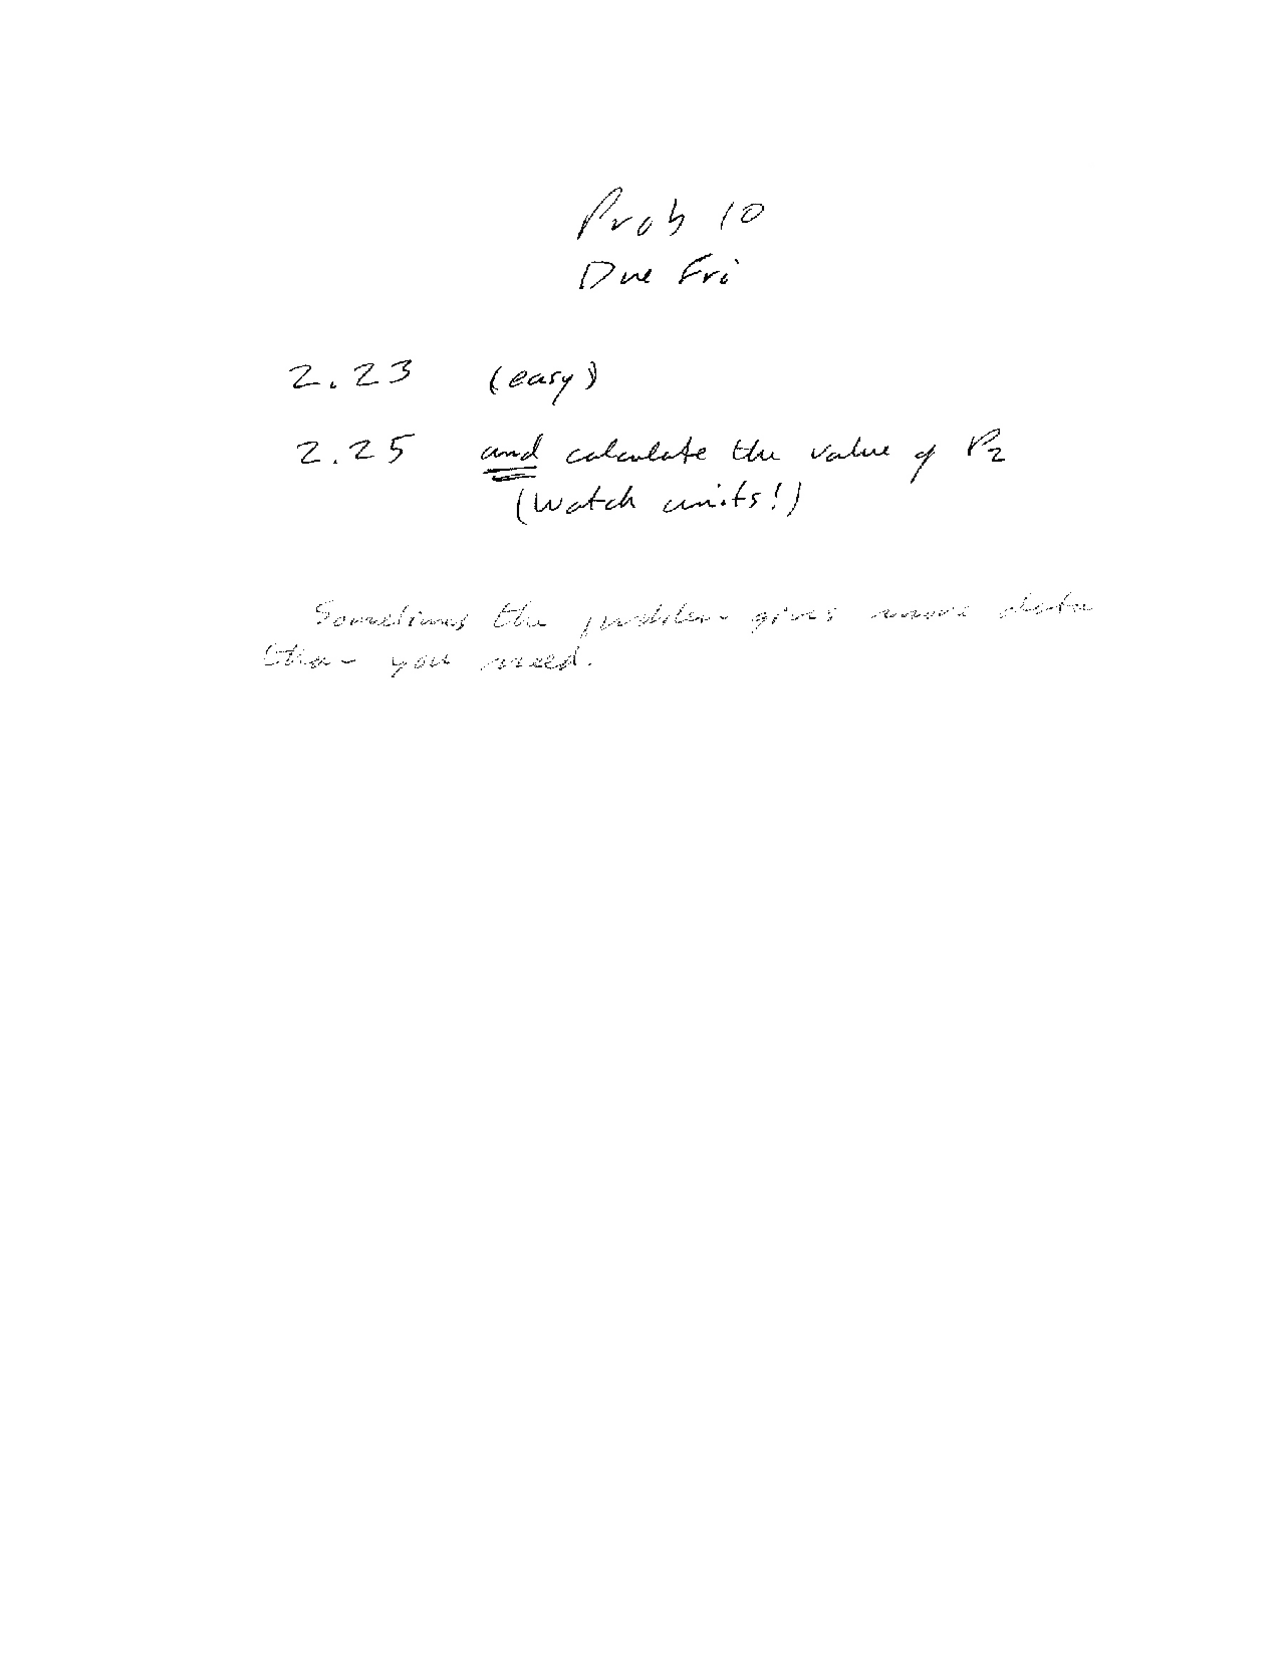 Prob 10
Due Fri
2.23 (easy)
2.25 and calculate the value of P2
(Watch units!)
Sometimes the problem gives more data
than you need.